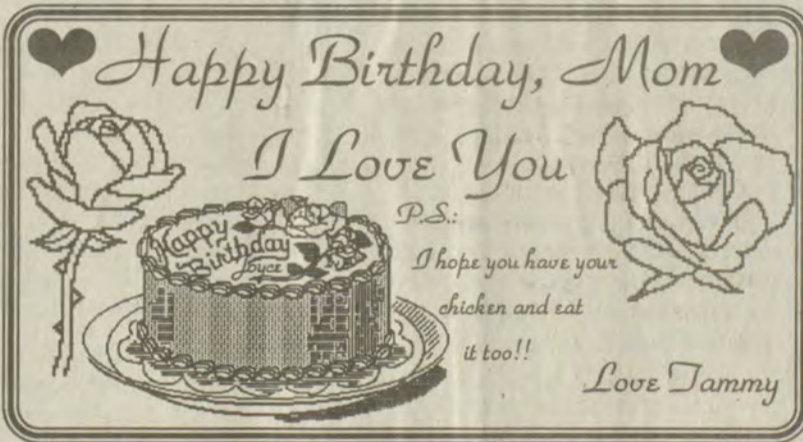 Happy Birthday, Mom
I Love You
Happy
Birthday
Joyce
P.S.:
I hope you have your
chicken and eat
it too!!
Love Tammy